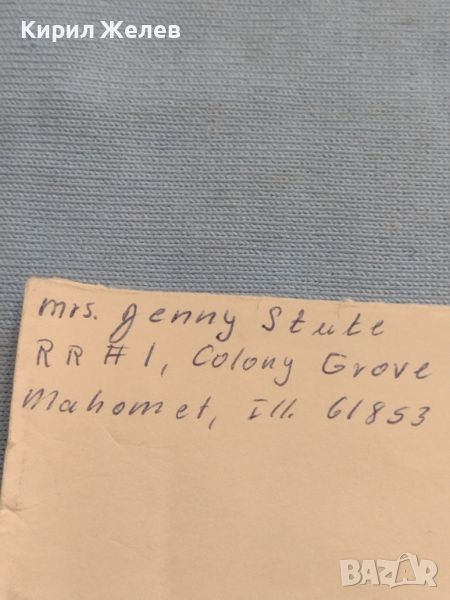 Кирил Желев
mrs. Jenny Stute
RR #1, Colony Grove
Mahomet, Ill. 61853
BAZAR